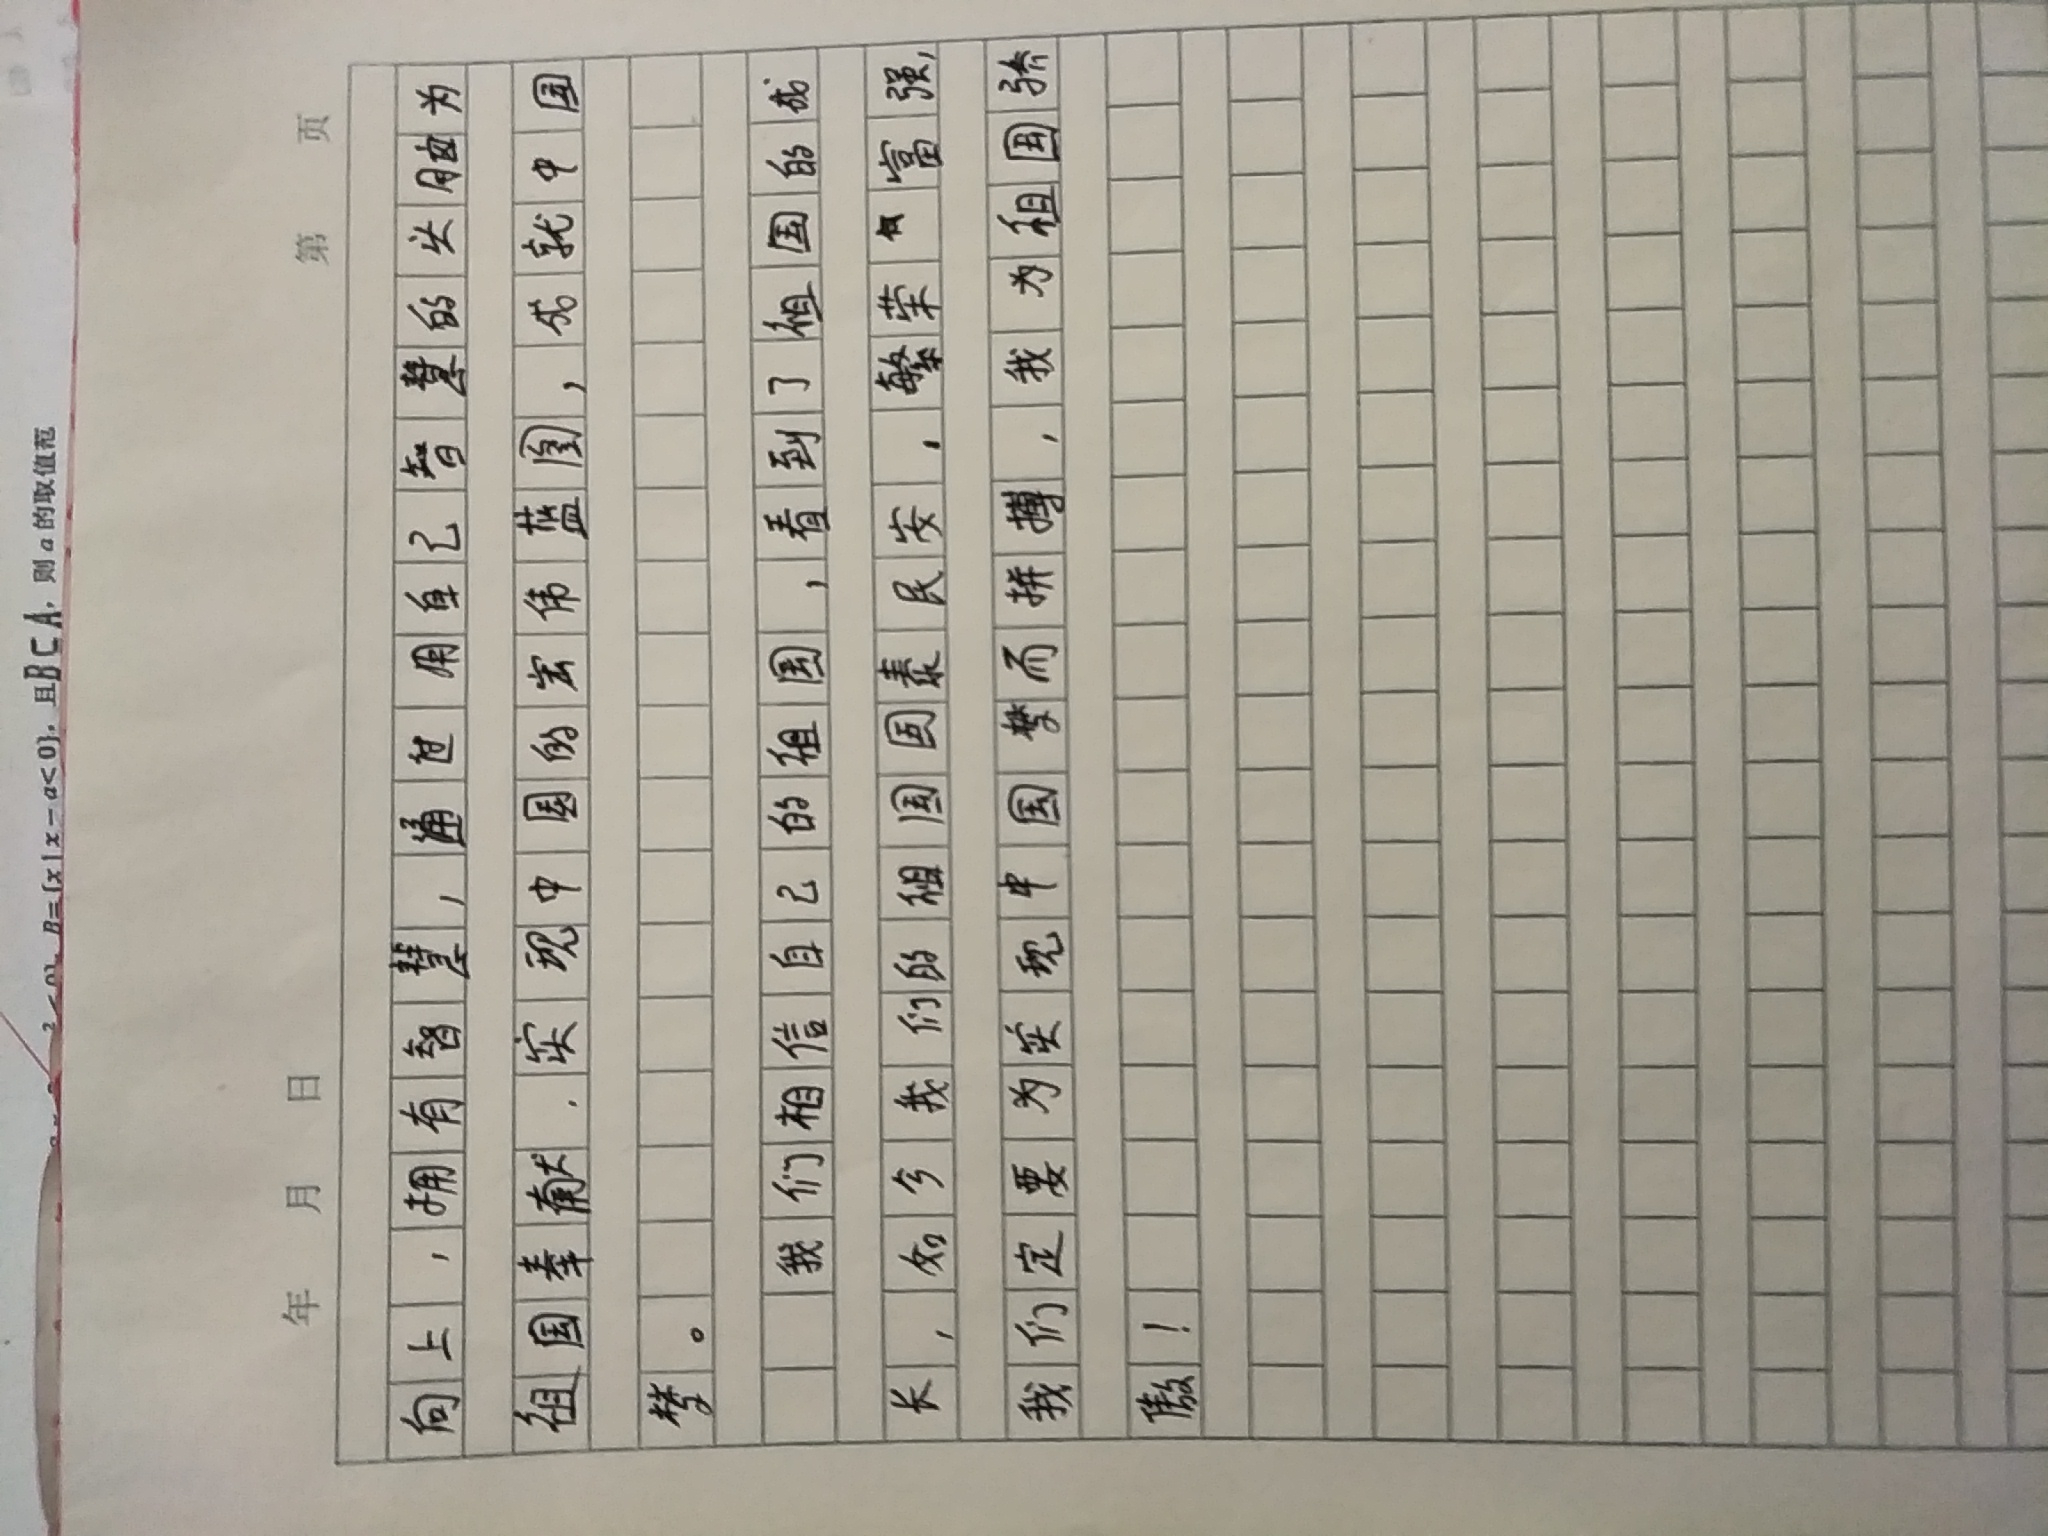 ²<0}, B={x|x-a<0}, 且B⊆A, 则a的取值范
年 月 日 第 页
向上,拥有智慧,通过用自己智慧的头脑为
祖国奉献,实现中国的宏伟蓝图,成就中国
梦。
我们相信自己的祖国,看到了祖国的成
长,如今我们的祖国国泰民安,繁荣富强,
我们定要为实现中国梦而拼搏,我为祖国骄
傲!